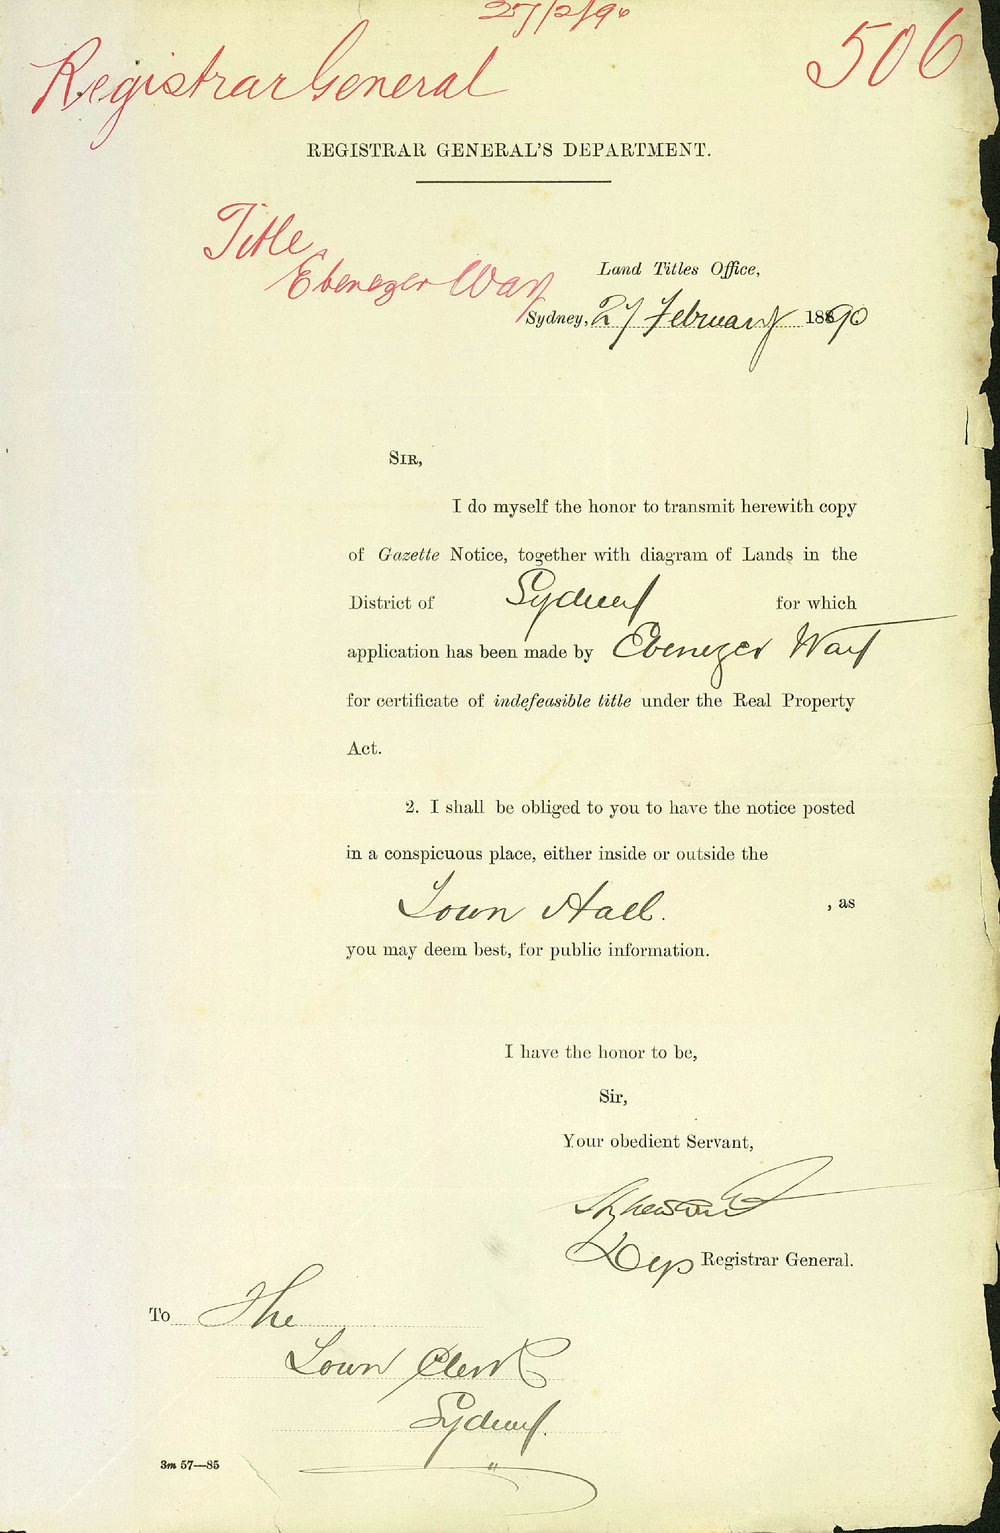 27/2/90
Registrar General
506
REGISTRAR GENERAL'S DEPARTMENT.
Title
Ebenezer Way
Land Titles Office,
Sydney, 27 February 18890
SIR,
I do myself the honor to transmit herewith copy
of Gazette Notice, together with diagram of Lands in the
District of Sydney for which
application has been made by Ebenezer Way
for certificate of indefeasible title under the Real Property
Act.
2. I shall be obliged to you to have the notice posted
in a conspicuous place, either inside or outside the
Town Hall. , as
you may deem best, for public information.
I have the honor to be,
Sir,
Your obedient Servant,
Dep Registrar General.
To The
Town Clerk
Sydney.
3m 57—85